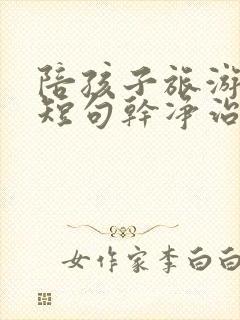 陪孩子旅游
短句幹净治
女作家李白白